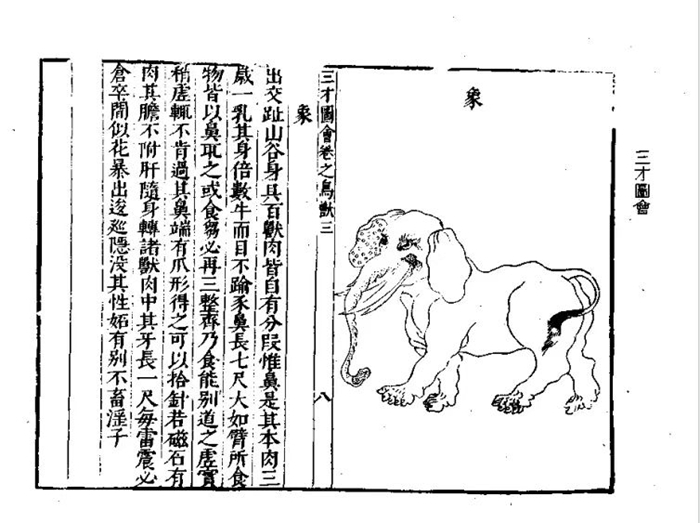 三才圖會
象
三才圖會卷之鳥獸三
八
象
出交趾山谷身具百獸肉皆自有分段惟鼻是其本肉三
歲一乳其身倍數牛而目不踰豕鼻長七尺大如臂所食
物皆以鼻取之或食芻必再三整齊乃食能别道之虛實
稍虛輒不肯過其鼻端有爪形得之可以拾針若磁石有
肉其膽不附肝隨身轉諸獸肉中其牙長一尺每雷震必
倉卒間似花暴出逡廵隱没其性妬有别不畜淫子